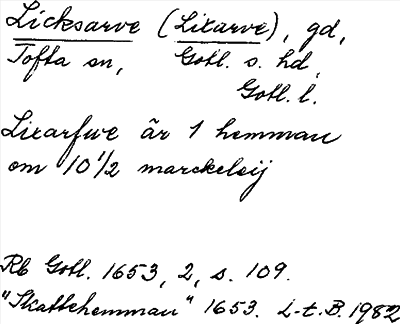 Licksarve (Lixarve), gd,
Tofta sn, Gotl. s. hd,
Gotl. l.
Lixarfwe är 1 hemman
om 10 1/2 marckeleij
Rb Gotl. 1653, 2, s. 109.
"Skattehemman" 1653. L-t. B. 1982